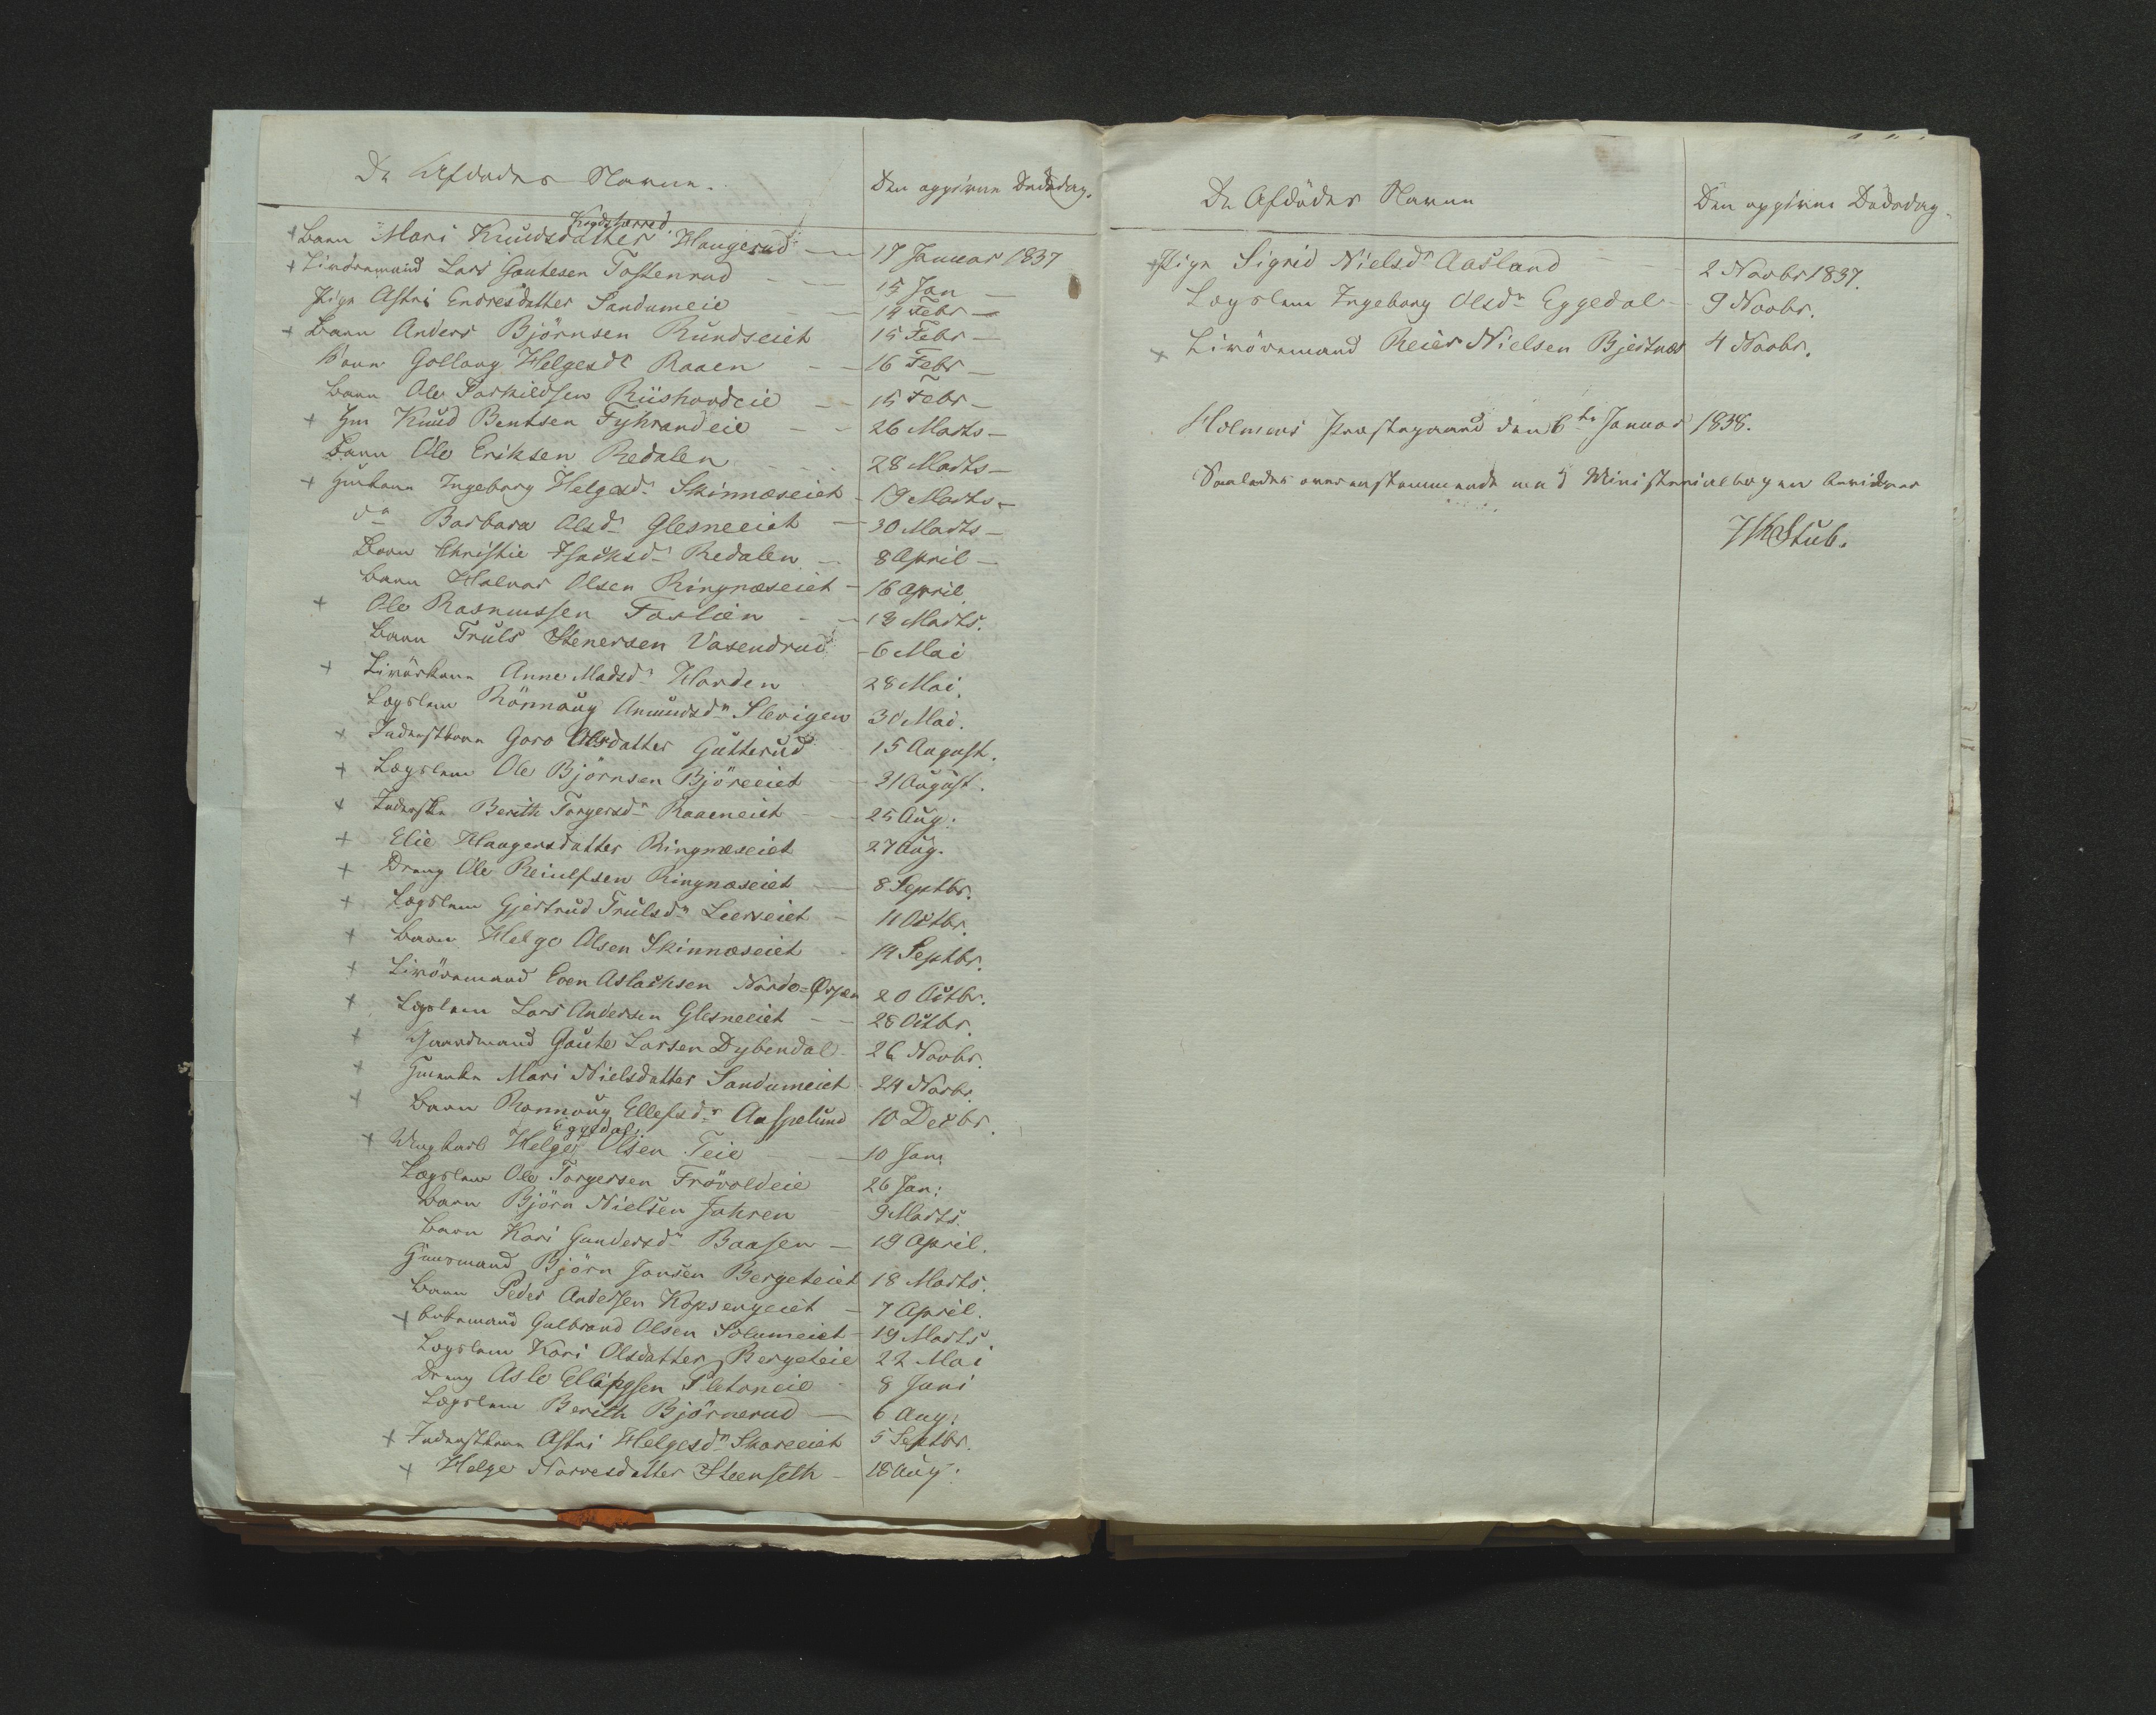 De Afdødes Navne.
Den opgivne Dødsdag.
Krydsherred
+ Barn Mari Knudsdatter Haugerud — 17 Januar 1837
+ Livöremand Lars Gautesen Tostenrud — 15 Jan —
Pige Astri Endresdatter Sandumeie — 14 Febr —
+ Barn Anders Björnsen Rundseiet 15 Febr —
Barn Gollaug Helgesdr Raaen — 16 Febr —
Barn Ole Torkildsen Riishovdeie — 15 Febr —
+ Hm Knud Bentsen Fyhrandeie — 26 Marts —
Barn Ole Eriksen Redalen 28 Marts —
+ Huuskone Ingeborg Helgesdr Skinnæseiet — 19 Marts —
do Barbara Olsdr Glesneeiet — 30 Marts —
Barn Christie Isacksdr Redalen — 8 April —
Barn Halvor Olsen Ringnæseiet — 16 April
+ Ole Rasmussen Foslien — 18 Marts.
Barn Truls Stenersen Vasendrud — 6 Mai
+ Livörkone Anne Madsdr Horden 28 Mai.
Lægslem Rönnaug Amundsdr Slevigen 30 Mai.
+ Inderstkone Goro Olsdatter Gutterud 15 August.
+ Lægslem Ole Björnsen Björeeiet — 31 August.
+ Inderstke Berith Torgersdr Raaeneiet — 25 Aug.
+ Elie Haagensdatter Ringnæseiet 27 Aug.
+ Dreng Ole Reiulfsen Ringnæseiet — 8 Septbr.
+ Lægslem Gjertrud Trulsdr Leerseiet — 11 Octbr.
+ Barn Helge Olsen Skinnæseiet 14 Septbr.
+ Livöremand Even Aslachsen Nordre-Ørpen 20 Octbr.
+ Lægslem Lars Andersen Glesneeiet — 28 Octbr.
+ Gaardmand Gaute Larsen Dybendal — 26 Novbr.
+ Huuske Mari Nielsdatter Sandumeiet — 24 Novbr.
+ Barn Ronnaug Ellefsdr Aaspelund 10 Decbr.
Eggedal.
+ Ungkarl Helge Olsen Teie — 10 Jan:
Lægslem Ole Torgersen Frövoldeie 26 Jan:
Barn Björn Nielsen Jahren 9 Marts.
Barn Kari Gundersdr Baasen — 19 April.
Huusmand Björn Jonsen Bergeteiet 18 Marts.
Barn Peder Andersen Kopsengeiet — 7 April.
+ Enkemand Gulbrand Olsen Solumeiet — 19 Marts
Lægslem Kari Olsdatter Bergeteie 22 Mai
Dreng Asle Ellingsen Pletaneie — 8 Juni
Lægslem Berith Björnerud — 6 Aug:
+ Inderstkone Astri Helgesdr Skareeiet 5 Septbr.
+ Helge Narvesdatter Steenseth — 18 Aug:
De Afdödes Navne
Den opgivne Dödsdag.
+ Pige Sigrid Nielsdr Aasland 2 Novbr 1837.
Lægslem Ingeborg Olsdr Eggedal — 9 Novbr.
+ Livöremand Reier Nielsen Bjertnæs 4 Novbr.
Holmens Præstegaard den 6te Januar 1838.
Saaledes overensstemmende med Ministerialbogen bevidner
Stub.